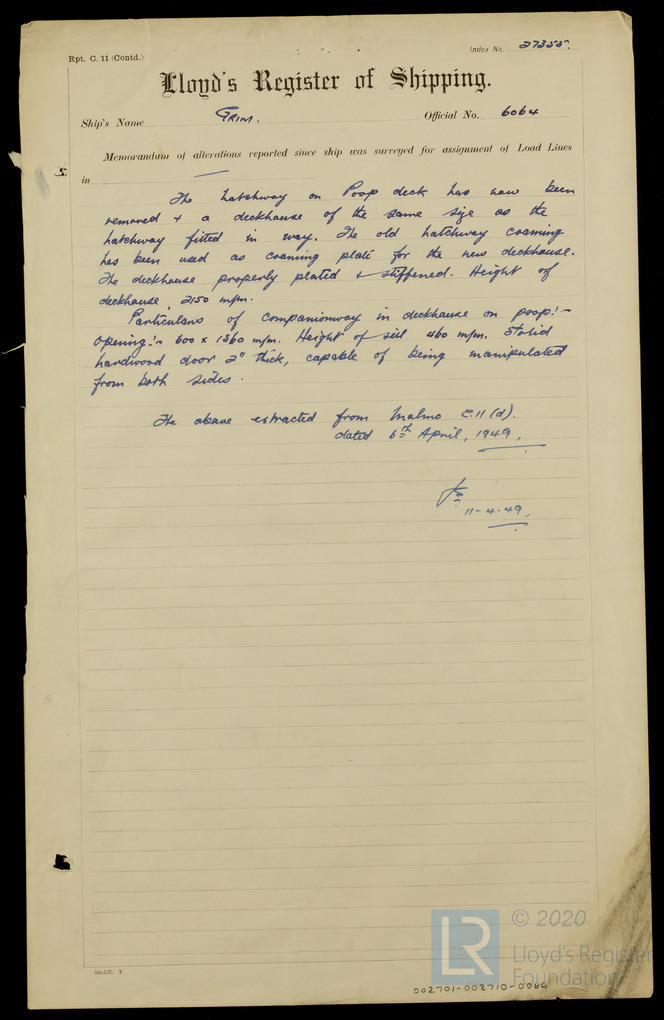 Rpt. C. 11 (Contd.)
Index No. 27355.
Lloyd's Register of Shipping.
Ship's Name GRIM. Official No. 6064
Memorandum of alterations reported since ship was surveyed for assignment of Load Lines
5.
in —
The hatchway on Poop deck has now been
removed & a deckhouse of the same size as the
hatchway fitted in way. The old hatchway coaming
has been used as coaming plate for the new deckhouse.
The deckhouse properly plated & stiffened. Height of
deckhouse, 2150 m/m.
Particulars of companionway in deckhouse on poop:-
Opening:- 600 x 1360 m/m. Height of sill 460 m/m. Solid
hardwood door 2" thick, capable of being manipulated
from both sides.
The above extracted from Malmo C.11 (d).
dated 6th April, 1949.
11-4-49.
© 2020
LR
Lloyd's Register
Foundation
002701-002710-0064